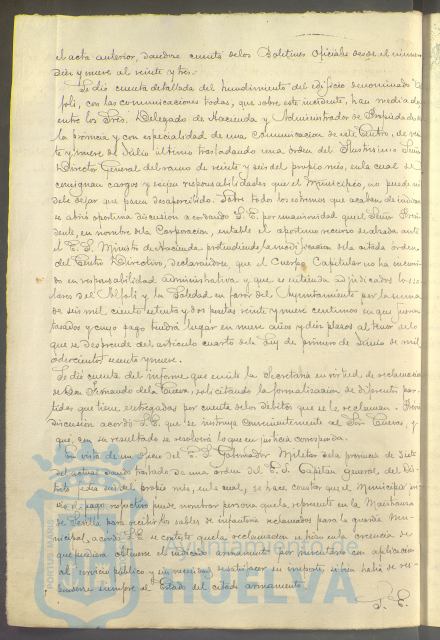 el acta anterior, dandose cuenta de los Boletines Oficiales desde el número
diez y nueve al veinte y tres.
Se dió cuenta detallada del hundimiento del edificio denominado
foli, con las comunicaciones todas, que sobre este incidente, han mediado
entre los Sres. Delegado de Hacienda y Administrador de Propiedades de
la provincia y con especialidad de una comunicacion de este Centro, de vein
te y nueve de Julio último trasladando una orden del Ilustrisimo Señor
Director General del ramo de veinte y seis del propio mes, en la cual se
consignan cargos y exigen responsabilidades que el Municipio, no puede ni
debe dejar que pasen desapercibido. Sobre todo los extremos que acaban de indicar
se abrió oportuna discusion acordando S. E. por unanimidad que el Señor Presi
dente, en nombre de la Corporacion, entable el oportuno recurso de alzada ante
el E. S. Ministro de Hacienda, pretendiendo la modificacion de la citada orden
del Centro Directivo, declarandose que el Cuerpo Capitular no ha incurri
do en responsabilidad administrativa y que se entienda adjudicados los so
lares del Asfoli y la Soledad en favor del Ayuntamiento por la suma
de seis mil ciento setenta y dos pesetas veinte y nueve centimos en que fueron
tasados y cuyo pago tendrá lugar en nueve años y diez plazos al tenor de lo
que se desprende del artículo cuarto de la Ley de primero de Junio de mil
ochocientos sesenta y nueve.
Se dió cuenta del informe que emite la Secretaría en virtud de reclamacion
de Don Fernando de la Cueva, solicitando la formalizacion de diferentes par
tidas que tiene entregadas por cuenta de los debitos que se le reclaman.
discusion acordó S. E. que se instruya convenientemente al Sor Cuevas, y
que, con su resultado se resolverá lo que en justicia corresponda.
En vista de un oficio del E. S. Gobernador Militar de la provincia de siete
del actual dando traslado de una orden del E. S. Capitan General del Dis
trito fecha seis del propio mes, en la cual, se hace constar que el Municipio
el pago respectivo puede nombrar persona que la represente en la Maestranza
de Sevilla para recibir los sables de infanteria reclamados para la guardia Mu
nicipal, acordó S. E. se conteste que la reclamacion se hizo en la creencia de
que pudiera obtenerse el indicado armamento por inventario con aplicacion
al servicio público y sin necesidad de satisfacer su importe, si bien había de re
sponderse siempre al Estado del citado armamento.
S. E.
PORTUS MARIS
Ayuntamiento de
HUELVA